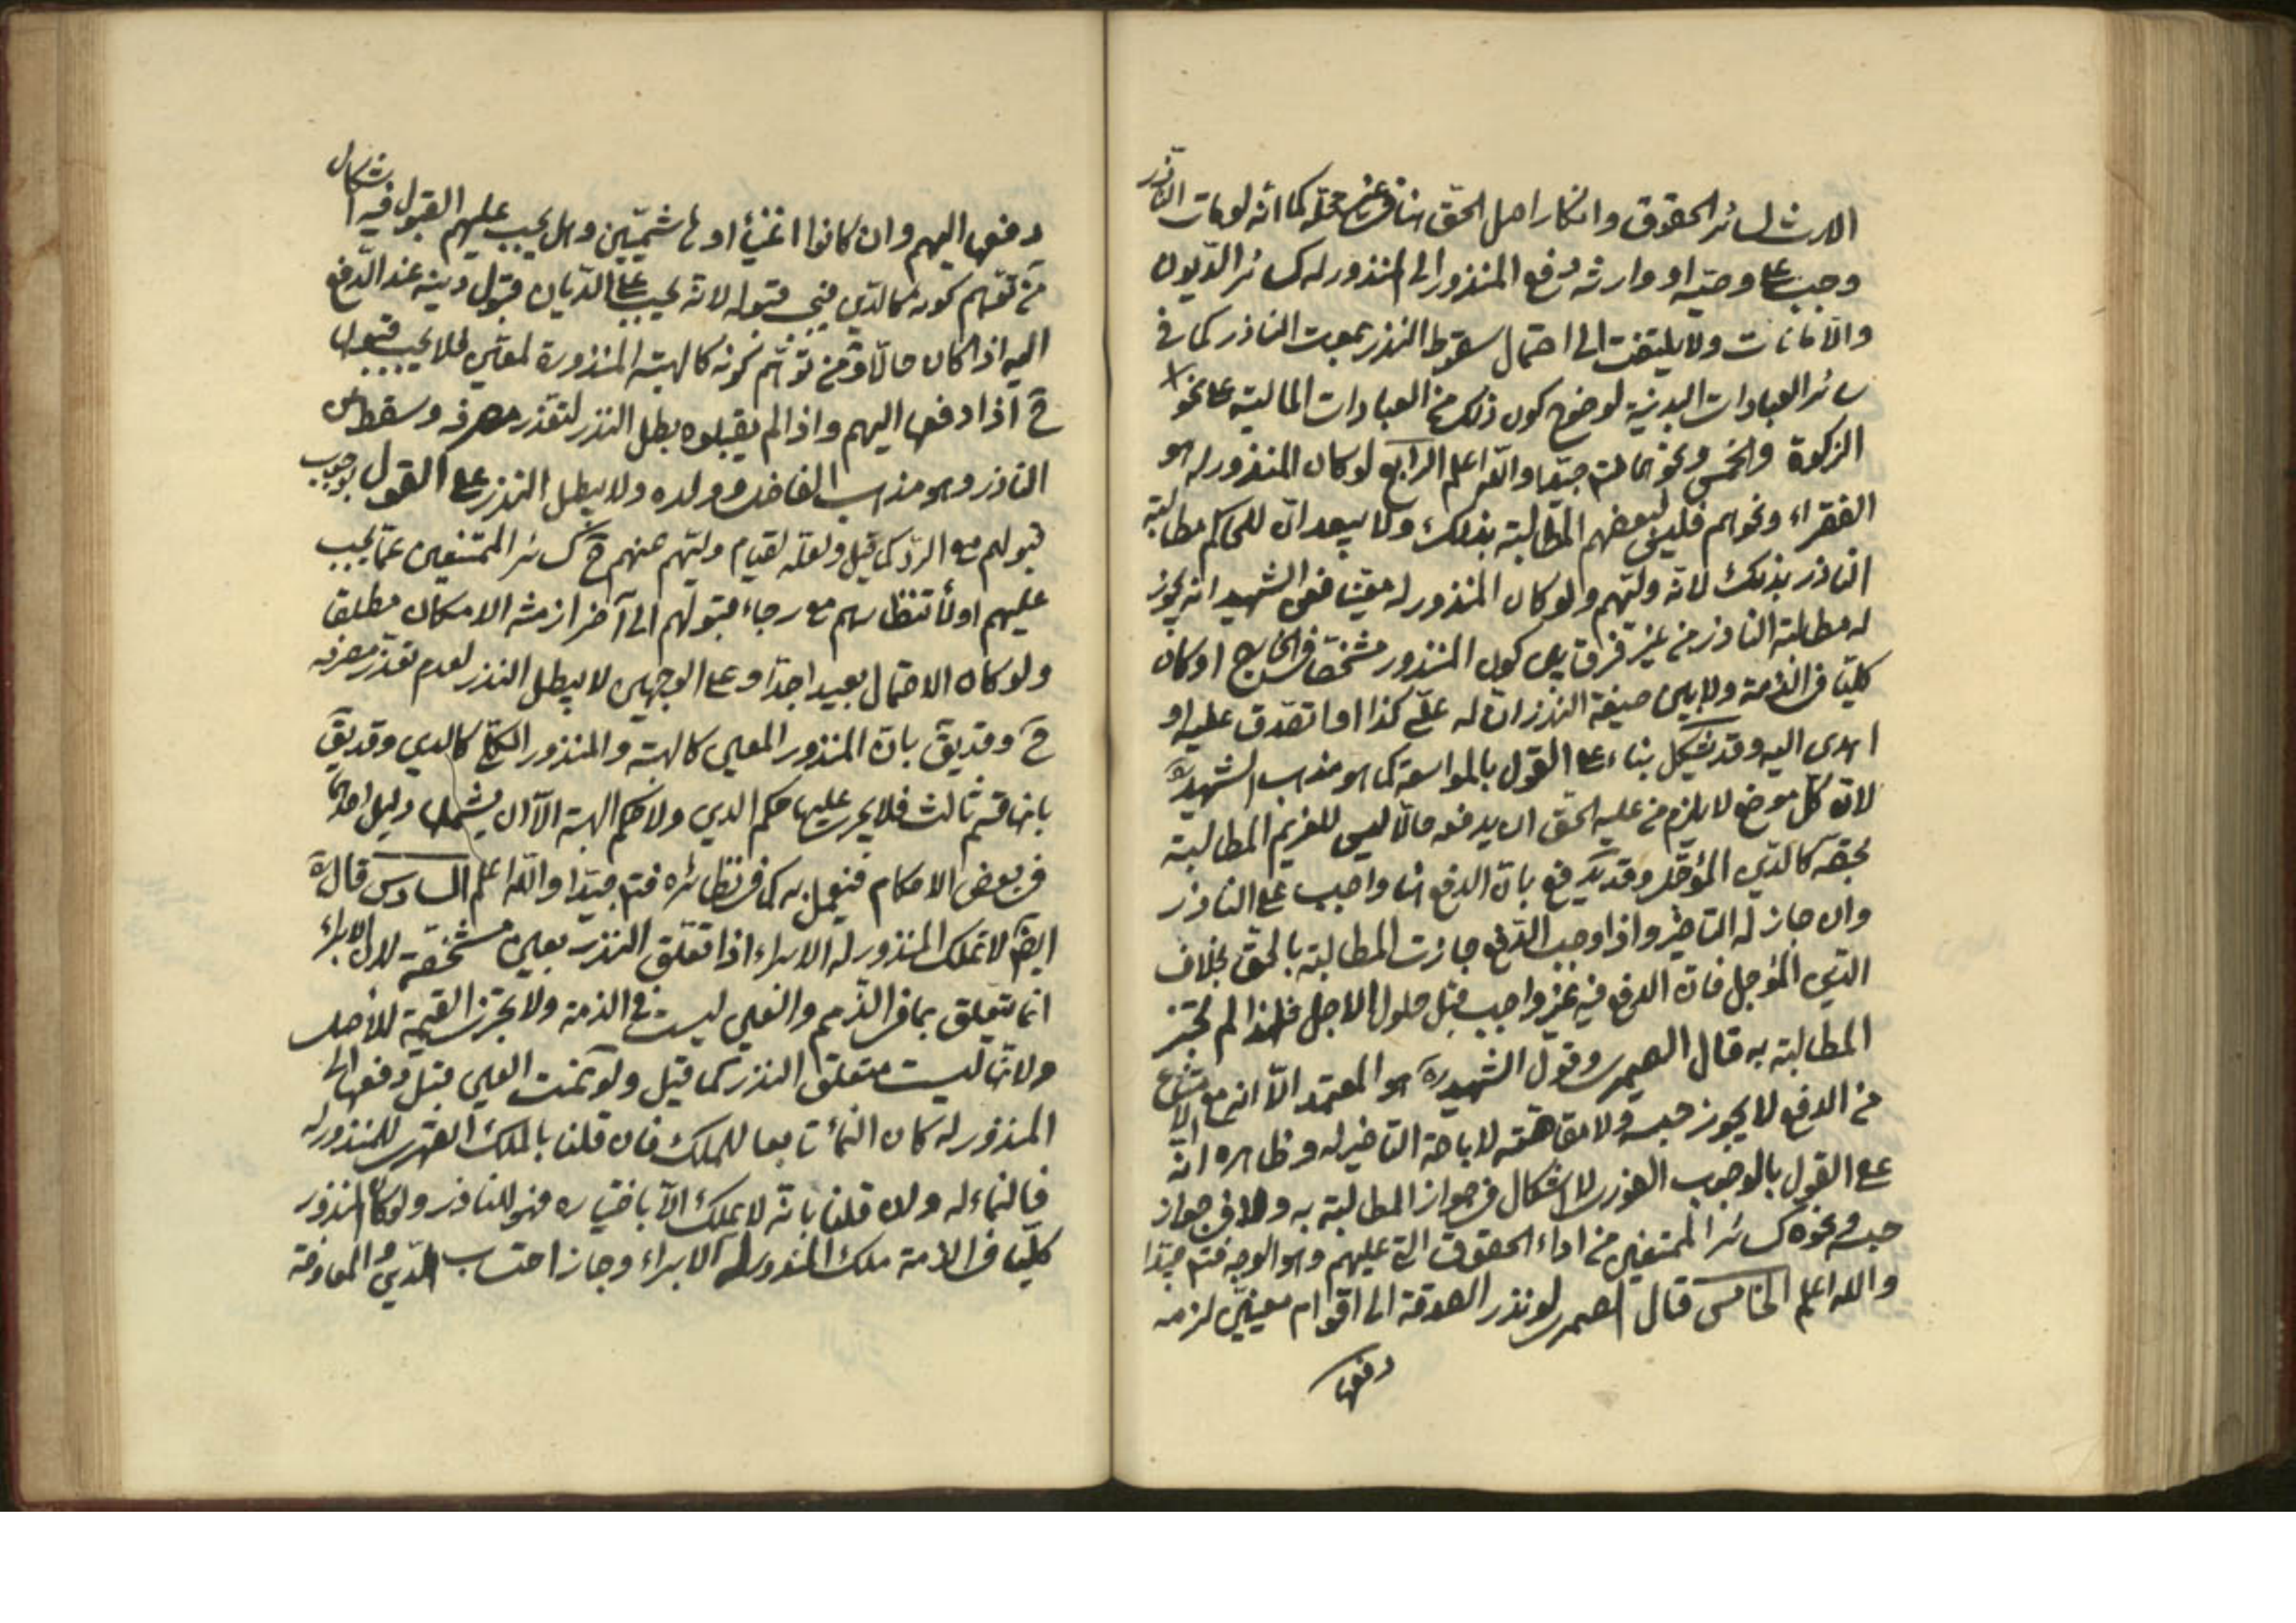 الارث لسائر الحقوق وانكار اصل الحق هنا في غير محله كما انه لو مات الناذر
وجب على وصيه او وارثه دفع المنذور الى المنذور له كسائر الديون
والامانات ولا يلتفت الى احتمال سقوط النذر بموت الناذر كما في
سائر العبادات البدنية لوضوح كون ذلك من العبادات المالية على نحو
الزكوة والخمس ونحوهما فتم جيدا والله اعلم الرابع لو كان المنذور له هو
الفقراء ونحوهم فليس لبعضهم المطالبة بذلك ولا يبعد ان للحاكم مطالبة
الناذر بذلك لانه وليهم ولو كان المنذور له معينا فعن الشهيد انه يجوز
له مطالبة الناذر من غير فرق بين كون المنذور مشخصا في الخارج او كان
كليا في الذمة ولا بين صيغة النذر ان له علي كذا او اتصدق عليه او
اهدى اليه وقد يشكل بناء على القول بالمواسعة كما هو مذهب الشهيد ره
لان كل موضع لا يلزم من عليه الحق ان يدفعه حالا ليس للغريم المطالبة
بحقه كالدين المؤجل وقد يدفع بان الدفع هنا واجب على الناذر
وان جاز له التاخير واذا وجب الدفع جازت المطالبة بالحق بخلاف
الدين المؤجل فان الدفع فيه غير واجب قبل حلول الاجل فلهذا لم تجز
المطالبة به قال الصيمري وقول الشهيد ره هو المعتمد الا انه مع الامتناع
من الدفع لا يجوز حبسه ولا مقاصته لاباحة التاخير له وظاهره انه
على القول بالوجوب الفوري لا اشكال في جواز المطالبة به ولا في جواز
حبسه ونحوه كسائر الممتنعين من اداء الحقوق التي عليهم وهو الوجه فتم جيدا
والله اعلم الخامس قال الصيمري لو نذر الصدقة الى اقوام معينين لزمه
دفعها
دفعها اليهم وان كانوا اغنياء او هاشميين وهل يجب عليهم القبول فيه اشكال
من توهم كونه كالدين فيجب قبوله لانه يجب على الديان قبول دينه عند الدفع
اليه اذا كان حالا ومن توهم كونه كالهبة المنذورة لمعين فلا يجب قبول
ح اذا دفعها اليهم واذا لم يقبلوه بطل النذر لتعذر مصرفه وسقط عن
الناذر وهو مذهب الفاضل وولده ولا يبطل النذر على القول بوجوب
قبولهم مع الرد كما قيل ولعله لقيام وليهم عنهم ح كسائر الممتنعين عما يجب
عليهم او لانتظارهم مع رجاء قبولهم الى آخر ازمنة الامكان مطلقا
ولو كان الاحتمال بعيدا جدا وعلى الوجهين لا يبطل النذر لعدم تعذر مصرفه
ح وقد يق بان المنذور المعين كالهبة والمنذور الكلي كالدين وقد يق
بانها قسم ثالث فلا يجري عليها حكم الدين ولا حكم الهبة الا ان يشملها دليل احدهما
في بعض الاحكام فيعمل به كما في نظائره فتم جيدا والله اعلم السادس قال ره
ايضا لا يملك المنذور له الابراء اذا تعلق النذر بعين مشخصة لان الابراء
انما يتعلق بما في الذمم والعين ليست في الذمة ولا يجزي القيمة للاصل
ولانها ليست متعلق النذر كما قيل ولو نمت العين قبل دفعها الى
المنذور له كان النماء تابعا للملك فان قلنا بالملك القهري للمنذور له
فالنماء له وان قلنا بانه لا يملك الا باختياره فهو للناذر ولو كان المنذور
كليا في الذمة ملك المنذور له الابراء وجاز احتساب الدين والمعاوضة